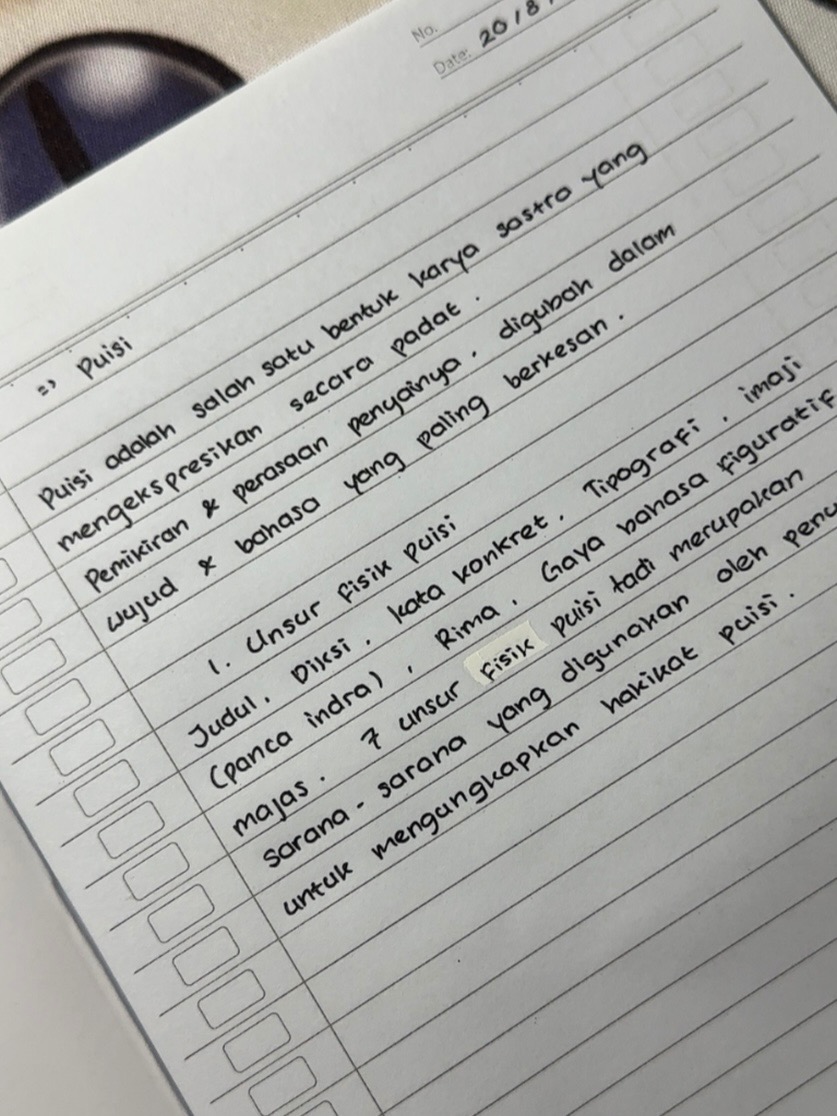 No.
Date: 20/8
=> Puisi
Puisi adalah salah satu bentuk karya sastra yang
mengekspresikan secara padat.
Pemikiran & perasaan penyainya, digubah dalam
wujud & bahasa yang paling berkesan.
1. Unsur fisik puisi
Judul, Diksi, kata konkret, Tipografi, imaji
(panca indra), Rima, Gaya bahasa figuratif
majas. 7 unsur fisik puisi tadi merupakan
sarana-sarana yang digunakan oleh
untuk mengungkapkan hakikat puisi.